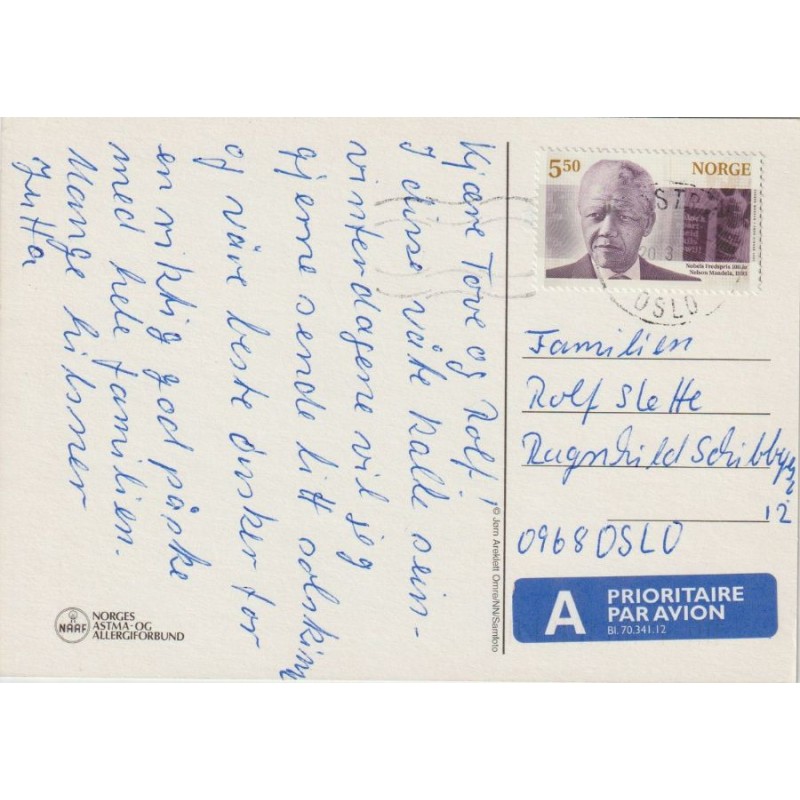 Kjære Tove og Rolf!
I disse våte kalde sein-
vinterdagene vil jeg
gjerne sende litt solskinn
og våre beste ønsker for
en riktig god påske
med hele familien.
Mange hilsner
Jutta
5.50 NORGE
Nobels Fredspris 100 år
Nelson Mandela, 1993
20.3
OSLO
Familien
Rolf Slette
12
0968 OSLO
A PRIORITAIRE
PAR AVION
Bl. 70.341.12
© Jørn Areklett Omre/NN/Samfoto
NAAF
NORGES
ASTMA- OG
ALLERGIFORBUND